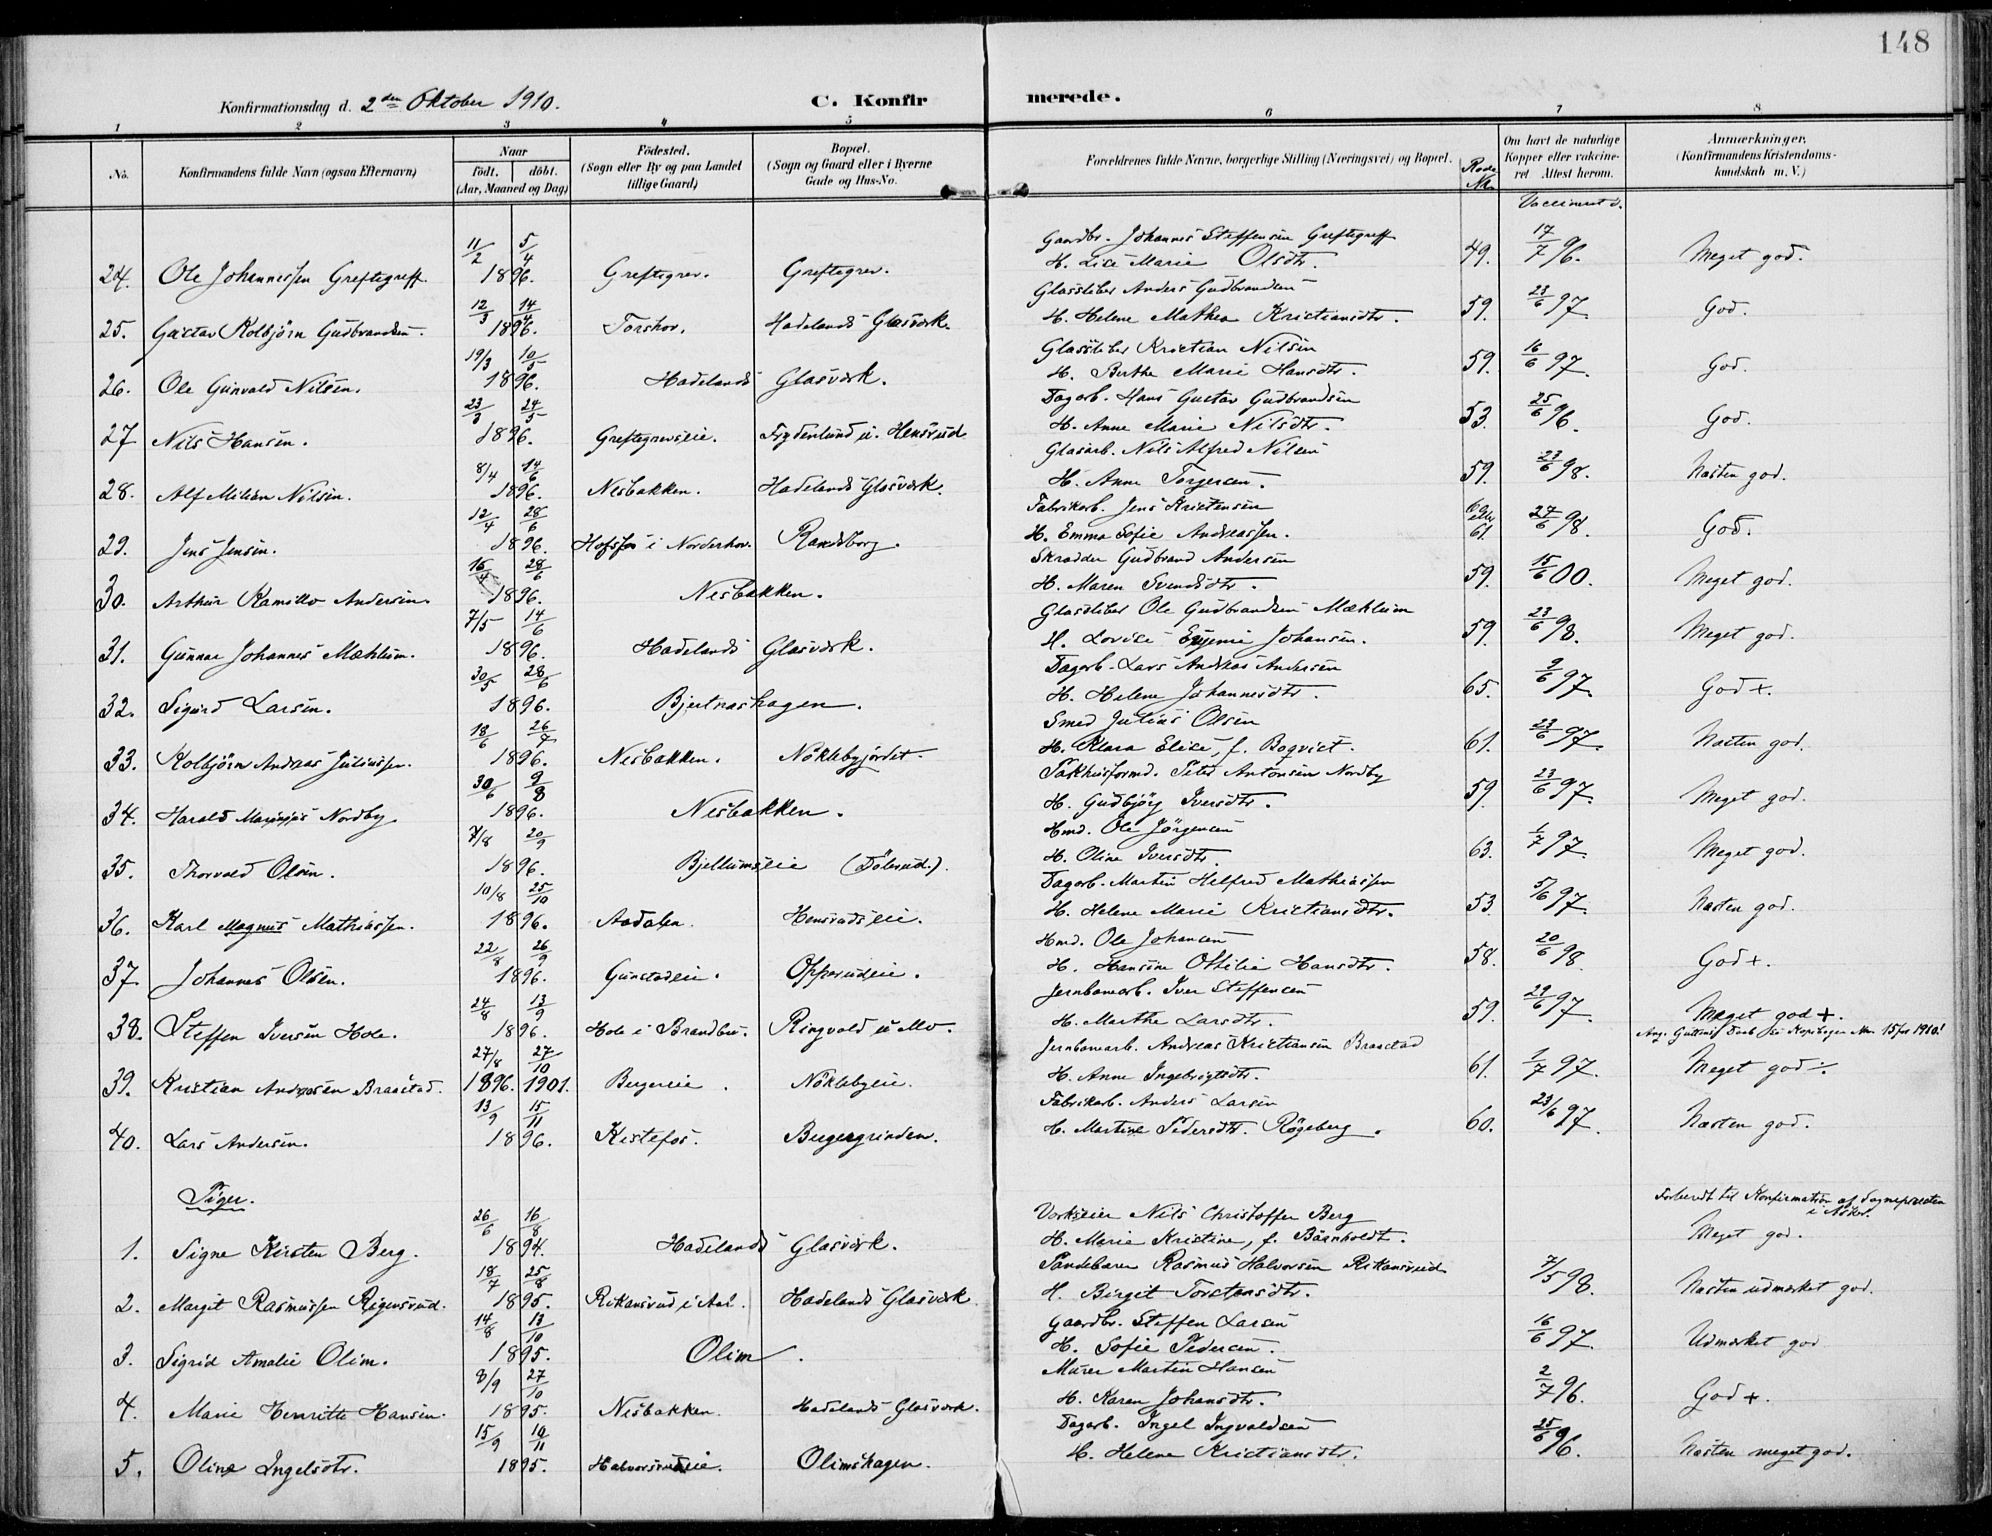 148
Konfirmationsdag d. 2den Oktober 1910. C. Konfirmerede.
1 2 3 4 5 6 7 8
No. Konfirmandens fulde Navn (ogsaa Efternavn) Naar født. døbt. (Aar, Maaned og Dag) Fødested. (Sogn eller By og paa Landet tillige Gaard) Bopæl. (Sogn og Gaard eller i Byerne Gade og Hus-No. Forældrenes fulde Navne, borgerlige Stilling (Næringsvei) og Bopæl. Rode No. Om havt de naturlige Kopper eller vakcineret Attest herom. Anmærkninger. (Konfirmandens Kristendomskundskab m. V.)
Vaccineret d.
11/2 5/4 Gaardbr. Johannes Steffensen Greftegreff 17/7 96.
24. Ole Johannessen Greftegreff. 1896. Greftegrev. Greftegrev. H. Lise Marie Olsdtr. 49. Meget god.
12/3 14/4 Glassliber Anders Gudbrandsen 23/6 97.
25. Gustav Kolbjörn Gudbrandsen. 1896. Torshov. Hadelands Glasværk. H. Helene Mathea Kristiansdtr. 59. God.
19/3 10/5 Glassliber Kristian Nilsen 16/6 97.
26. Ole Gunvald Nilsen. 1896. Hadelands Glasværk. H. Berthe Marie Hansdtr. 59. God.
23/3 24/5 Dagarb. Hans Gustav Gudbrandsen 25/6 96.
27 Nils Hansen. 1896. Greftegrevseie. Frydenlund u. Hensrud H. Anne Marie Nilsdtr. 53. God.
8/4 14/6 Glasarb. Nils Alfred Nilsen 23/6 98.
28. Alf Milian Nilsen. 1896. Nesbakken. Hadelands Glasværk. H. Anne Torgersen. 59. Næsten god.
12/4 28/6 Fabrikarb. Jens Kristensen 27/6 98.
29. Jens Jensen. 1896. Hofsfos i Norderhov. Randsborg. H. Emma Sofie Andreassen. 61. God.
16/4 28/6 Skrædder Gudbrand Andersen 15/6 00.
30. Arthur Kamillo Andersen. 1896. Nesbakken. H. Maren Svendsdtr. 59. Meget god.
7/5 14/6 Glassliber Ole Gudbrandsen Mæhlum 23/6 98.
31. Gunnar Johannes Mæhlum. 1896. Hadelands Glasværk. H. Lovise Eugenie Johansen. 59. Meget god.
30/5 28/6 Dagarb. Lars Andreas Andersen 2/6 97.
32. Sigurd Larsen. 1896. Bjertnæshagen. H. Helene Johannesdtr. 65. God +.
18/6 26/7 Smed Julius Olsen 23/6 97.
33. Kolbjörn Andreas Juliussen. 1896. Nesbakken. Nöklebyjordet. H. Klara Elise, f. Boqvist. 61. Næsten god.
30/6 9/8 Pakhusformd. Peter Antonsen Nordby 23/6 97.
34. Harald Nordby 1896. Nesbakken. H. Gudbjörg Iversdtr. 59. Meget god.
7/8 20/9 Hmd. Ole Jörgensen 1/7 97.
35. Thorvald Olsen. 1896. Bjellumseie (Dölerud.). H. Oline Iversdtr. 63. Meget god.
10/8 25/10 Dagarb. Martin Helfred Mathiassen 5/6 97.
36. Karl Magnus Mathiassen. 1896. Aadalen. Hensrudseie. H. Helene Marie Kristiansdtr. 53. Næsten god.
22/8 26/9 Hmd. Ole Johansen 20/6 98.
37. Johannes Olsen. 1896. Gunstadeie. Opperudeie. H. Hansine Ottilie Hansdtr. 58. God +.
24/8 13/9 Jernbanearb. Iver Steffensen 29/6 97.
38. Steffen Iversen Hole. 1896. Hole i Brandbu. Ringvold u Mo. H. Marthe Larsdtr. 59. Meget god +.
27/8 27/10 Jernbanearb. Andreas Kristiansen Braastad 1/7 97.
39. Kristian Andreasen Braastad. 1896. 1901. Bergereie. Nöklebyeie. H. Anne Ingebrigtsdtr. 61. Meget god ÷.
13/9 15/11 Fabrikarb. Anders Larsen 23/6 97.
40. Lars Andersen. 1896. Kistefos. Bergergrinden. H. Martine Pedersdtr. Rögeberg. 60. Næsten god.
Piger.
Forberedt til Konfirmation af Sognepresten i Asker.
26/6 16/8 Værkseier Nils Christoffer Berg
1. Signe Kirsten Berg. 1894. Hadelands Glasværk. H. Marie Kristine, f. Bärnholdt. Meget god.
18/7 25/8 Pandebærer Rasmus Halvorsen Rikansrud 7/5 98.
2. Margit Rasmussen Rigensrud. 1895. Rikansrud i Aal. Hadelands Glasværk. H. Birgit Torstensdtr. Næsten udmærket god.
14/8 13/10 Gaardbr. Steffen Larsen 16/6 97.
3. Sigrid Amalie Olim. 1895. Olim. H. Sofie Pedersen. Udmærket god
8/9 27/10 Murer Martin Hansen 2/7 96.
4. Marie Henritte Hansen. 1895. Nesbakken. Hadelands Glasværk. H. Karen Johansdtr. God +.
15/9 10/11 Dagarb. Ingel Ingvaldsen 25/6 96.
5. Oline Ingelsdtr. 1895. Halvorsrudeie. Olimshagen. H. Helene Kristiansdtr. Næsten meget god.